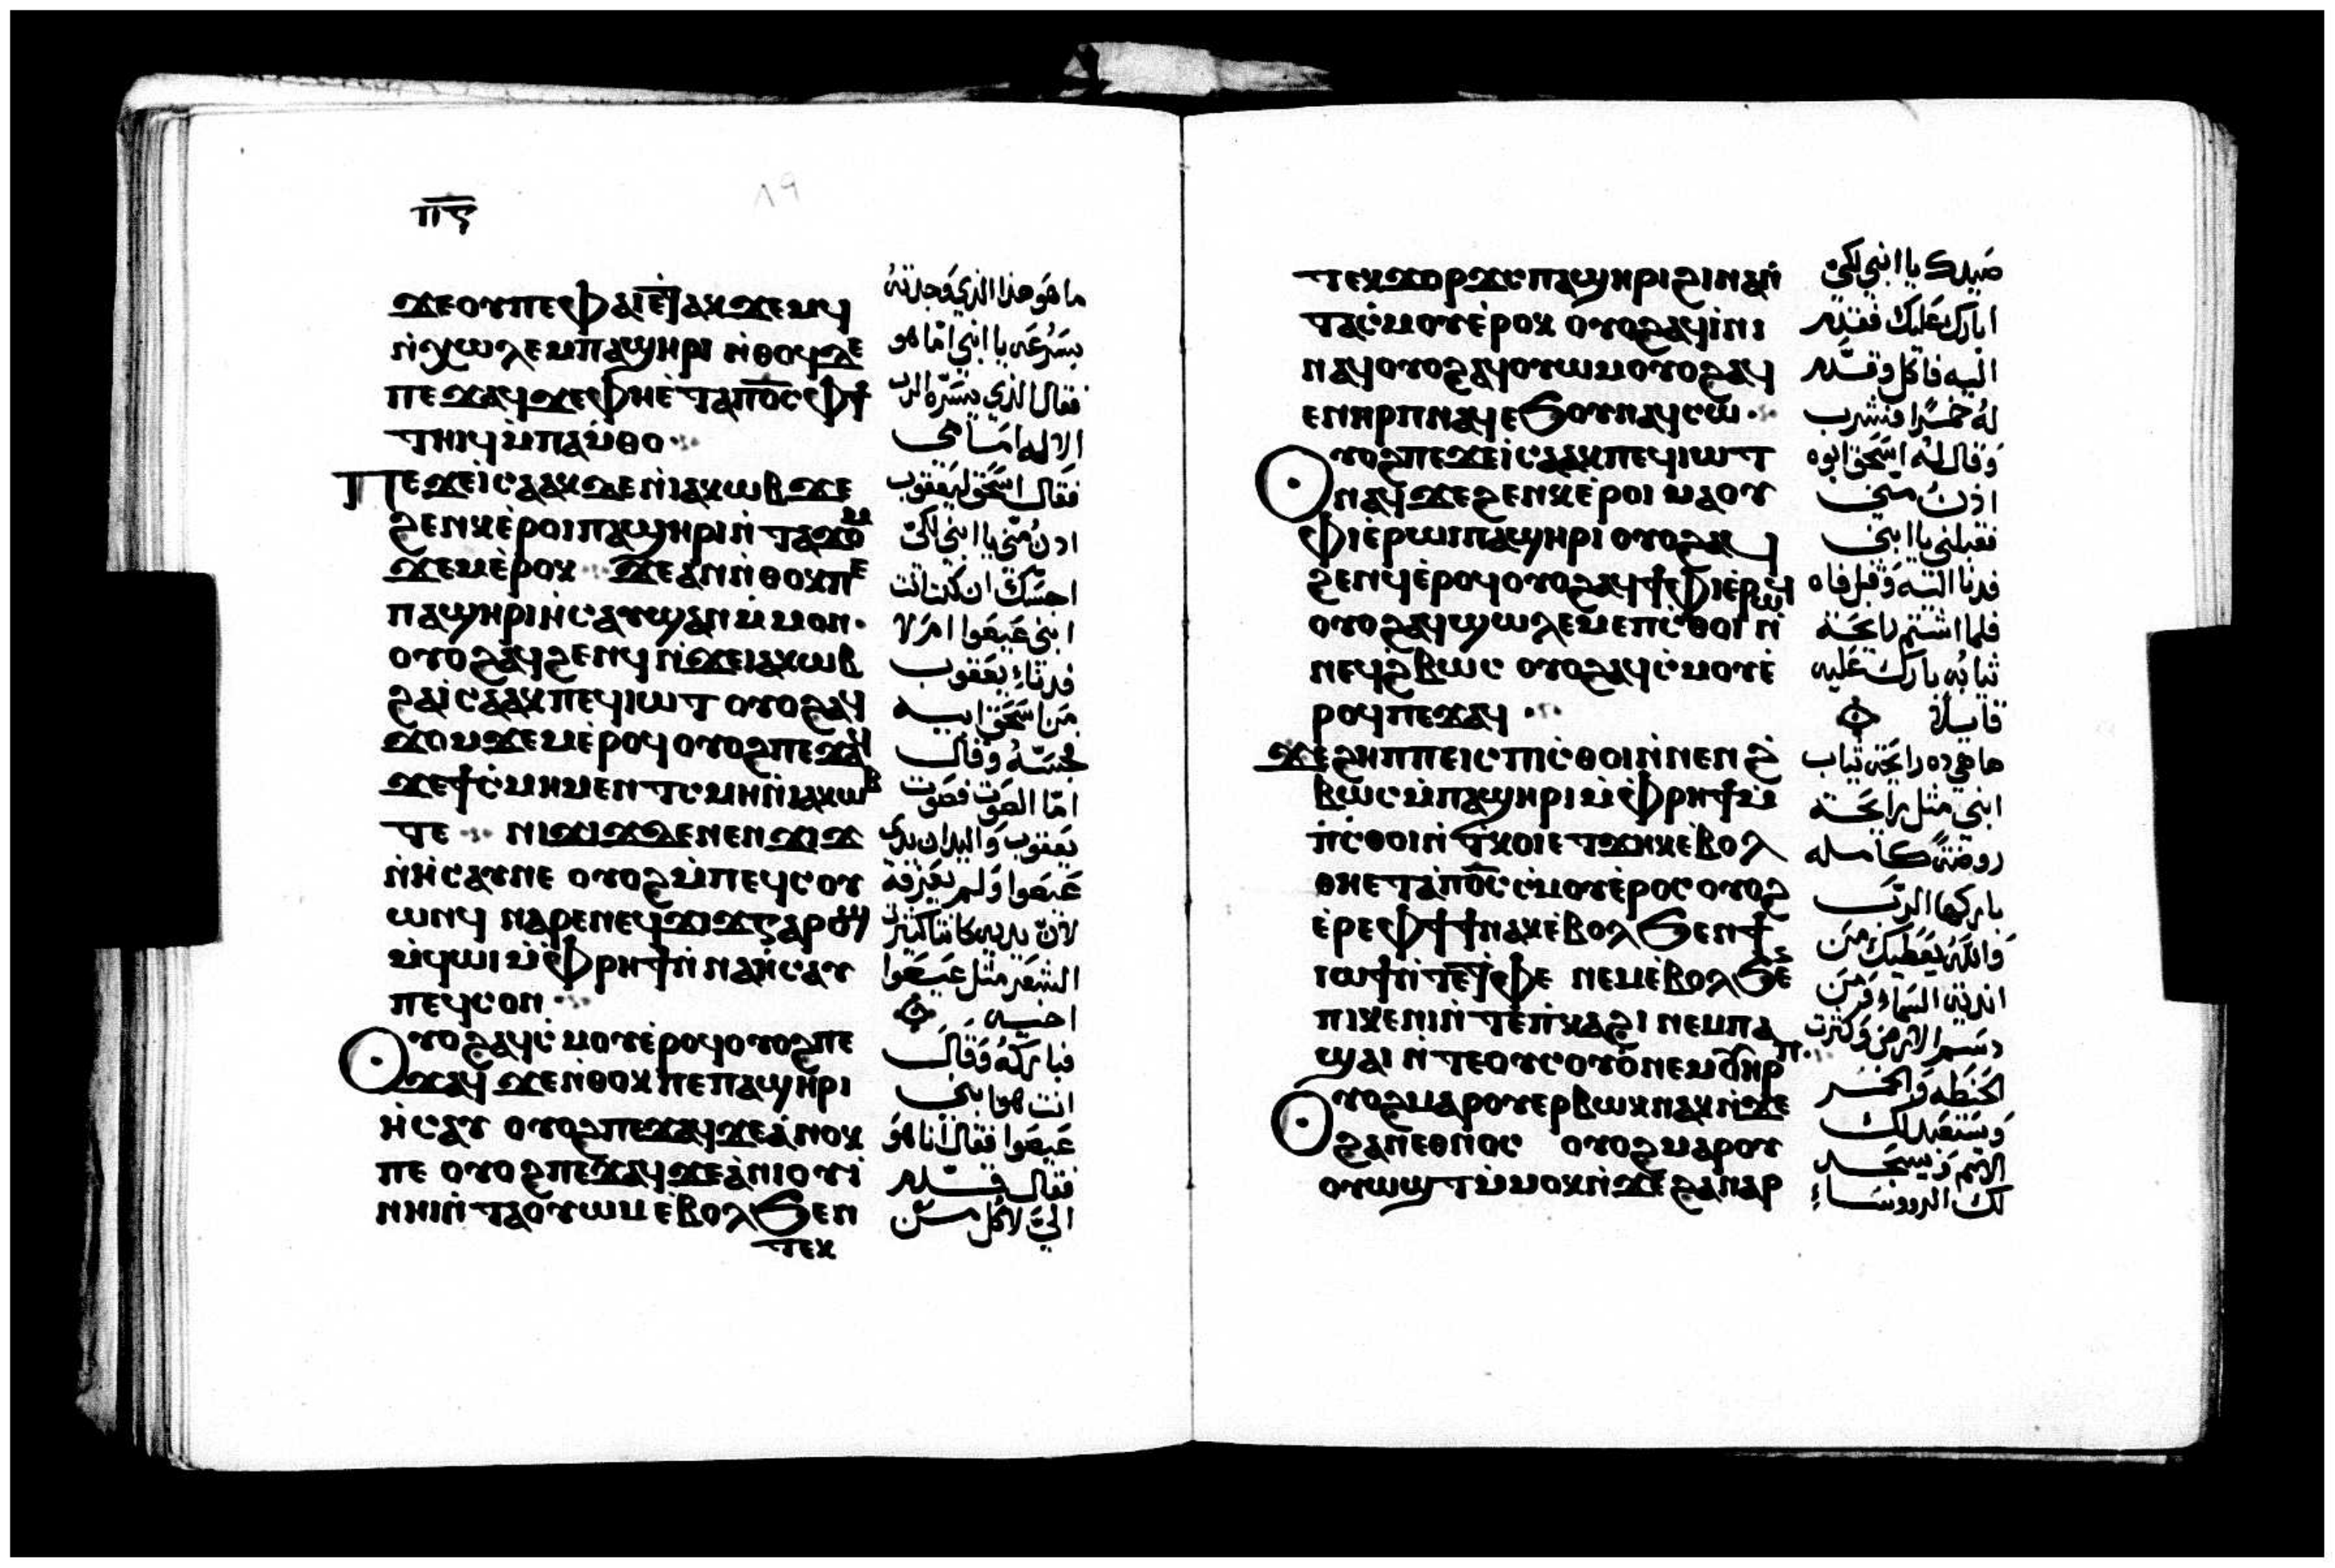 ⲡ︦ⲋ︦
٨٩
ϫⲉⲟⲩⲡⲉⲫⲁⲓⲉ̀ⲧⲁⲕϫⲉⲙϥ
ⲛ̀ⲭⲱⲗⲉⲙⲡⲁϣⲏⲣⲓ ⲛ̀ⲑⲟϥⲇⲉ
ⲡⲉϫⲁϥϫⲉⲫⲏⲉ̀ⲧⲁⲡⲟ̅ⲥ̅ⲫϯ
ⲧⲏⲓϥⲙ̀ⲡⲁⲙ̀ⲑⲟ
Ⲡⲉϫⲉⲓ̀ⲥⲁⲁⲕⲇⲉⲛ̀ⲓⲁⲕⲱⲃϫⲉ
ϧⲉⲛⲕⲉ̀ⲣⲟⲓⲡⲁϣⲏⲣⲓⲛ̀ⲧⲁϫⲟⲙ
ϫⲉⲙⲉ̀ⲣⲟⲕ ϫⲉⲁⲛⲛ̀ⲑⲟⲕⲡⲉ
ⲡⲁϣⲏⲣⲓⲏ̀ⲥⲁⲩϣⲁⲛⲙ̀ⲙⲟⲛ
ⲟⲩⲟϩⲁϥϧⲉⲛϥⲛ̀ϫⲉⲓⲁⲕⲱⲃ
ϩⲁⲓ̀ⲥⲁⲁⲕⲡⲉϥⲓⲱⲧ ⲟⲩⲟϩⲁϥ
ϫⲟⲙϫⲉⲙⲉ̀ⲣⲟϥⲟⲩⲟϩⲡⲉϫⲁϥ
ϫⲉϯⲥ̀ⲙⲏⲙⲉⲛⲧⲥⲙⲏⲛ̀ⲓⲁⲕⲱⲃ
ⲧⲉ ⲛⲓϫⲓϫⲇⲉⲛⲉⲛϫⲓϫ
ⲛ̀ⲏ̀ⲥⲁⲩⲛⲉ ⲟⲩⲟϩⲙ̀ⲡⲉϥⲥⲟⲩ
ⲱⲛϥ ⲛⲁⲣⲉⲛⲉϥϫⲓϫⲅⲁⲣⲟⲓ
ⲙ̀ϥⲱⲓⲙ̀ⲫⲣⲏϯⲛ̀ⲛⲁⲏ̀ⲥⲁⲩ
ⲡⲉϥⲥⲟⲛ
Ⲟⲩⲟϩⲁϥⲥ̀ⲙⲟⲩⲉ̀ⲣⲟϥⲟⲩⲟϩⲡⲉ
ϫⲁϥ ϫⲉⲛ̀ⲑⲟⲕⲡⲉⲡⲁϣⲏⲣⲓ
ⲏ̀ⲥⲁⲩ ⲟⲩⲟϩⲡⲉϫⲁϥϫⲉⲁ̀ⲛⲟⲕ
ⲡⲉ ⲟⲩⲟϩⲡⲉϫⲁϥϫⲉⲁ̀ⲛⲓⲟⲩⲓ̀
ⲛⲏⲓⲛ̀ⲧⲁⲟⲩⲱⲙⲉ̀ⲃⲟⲗϧⲉⲛ
ⲧⲉⲕ
ما هو هذا الذي وجدته
بسرعه يا ابني اما هو
فقال الذي يسره الرب
الاله امامي
فقال اسحق ليعقوب
ادن مني يا ابني لكي
اجسك ان كنت انت
ابني عيصوا ام لا
فدنا يعقوب
من اسحق ابيه
فجسه وقال
اما الصوت فصوت
يعقوب واليدان يدي
عيصوا ولم يعرفه
لان يديه كانتا كثيرة
الشعر مثل عيصوا
اخيه
فباركه وقال
انت هو ابني
عيصوا فقال انا هو
فقال قدم
الي لاكل من
ⲧⲉⲕϫⲟⲣϫⲥⲡⲁϣⲏⲣⲓϩⲓⲛⲁⲛ̀
ⲧⲁⲥ̀ⲙⲟⲩⲉ̀ⲣⲟⲕ ⲟⲩⲟϩⲁϥⲓ̀ⲛⲓ
ⲛⲁϥⲟⲩⲟϩⲁϥⲟⲩⲱⲙⲟⲩⲟϩⲁϥ
ⲉⲛⲏⲣⲡⲛⲁϥⲉϧⲟⲩⲛⲁϥⲥⲱ
Ⲟⲩⲟϩⲡⲉϫⲉⲓ̀ⲥⲁⲁⲕⲡⲉϥⲓⲱⲧ
ⲛⲁϥϫⲉϧⲉⲛⲕⲉ̀ⲣⲟⲓ ⲙⲁⲟⲩ
ⲫⲓⲉ̀ⲣⲱⲓⲡⲁϣⲏⲣⲓ ⲟⲩⲟϩⲁϥ
ϧⲉⲛϥⲉ̀ⲣⲟϥⲟⲩⲟϩⲁϥϯⲫⲓⲉ̀ⲣⲱϥ
ⲟⲩⲟϩⲁϥϣⲱⲗⲉⲙⲉⲡⲥ̀ⲑⲟⲓⲛ̀
ⲛⲉϥϩ̀ⲃⲱⲥ ⲟⲩⲟϩⲁϥⲥ̀ⲙⲟⲩⲉ̀
ⲣⲟϥⲡⲉϫⲁϥ
ϫⲉϩⲏⲡⲡⲉⲓⲥⲡⲓⲥ̀ⲑⲟⲓⲛ̀ⲛⲉⲛϩ̀
ⲃⲱⲥⲙ̀ⲡⲁϣⲏⲣⲓⲙ̀ⲫⲣⲏϯⲙ̀
ⲡ̀ⲥⲑⲟⲓⲛ̀ⲧ̀ⲕⲟⲓⲉⲧϫⲏⲕⲉ̀ⲃⲟⲗ
ⲑⲏⲉⲧⲁ̀ⲡⲟ̅ⲥ̅ⲥ̀ⲙⲟⲩⲉ̀ⲣⲟⲥⲟⲩⲟϩ
ⲉ̀ⲣⲉⲫϯϯⲛⲁⲕⲉ̀ⲃⲟⲗϧⲉⲛϯ
ⲓⲱϯⲛ̀ⲧⲉⲧ̀ⲫⲉ ⲛⲉⲙⲉ̀ⲃⲟⲗϧⲉ
ⲡⲓⲕⲉⲛⲓⲛ̀ⲧⲉⲡ̀ⲕⲁϩⲓ ⲛⲉⲙⲡⲁ
ϣⲁⲓ ⲛ̀ⲧⲉⲟⲩⲥⲟⲩⲟ̀ⲛⲉⲙⲟⲩⲏⲣⲡ
Ⲟⲩⲟϩⲙⲁⲣⲟⲩⲉⲣⲃⲱⲕⲛⲁⲕⲛ̀ϫⲉ
ϩⲁⲛⲉⲑⲛⲟⲥ ⲟⲩⲟϩⲙⲁⲣⲟⲩ
ⲟⲩⲱϣⲧⲙ̀ⲙⲟⲕⲛ̀ϫⲉϩⲁⲛⲁⲣ
صيدك يا ابني لكي
ابارك عليك فقدم
اليه فاكل وقدم
له خمرا فشرب
وقال له اسحق ابوه
ادن مني
فقبلني يا ابني
فدنا اليه وقبل فاه
فلما اشتم رايحة
ثيابه بارك عليه
قايلا
ها هي ذه رايحة ثياب
ابني مثل رايحة
روضة كامله
باركها الرب
والله يعطيك من
اندية السماء ومن
دسم الارض وكثرة
الحنطه والخمر
وتستعبد لك
الامم ويسجد
لك الرووساء